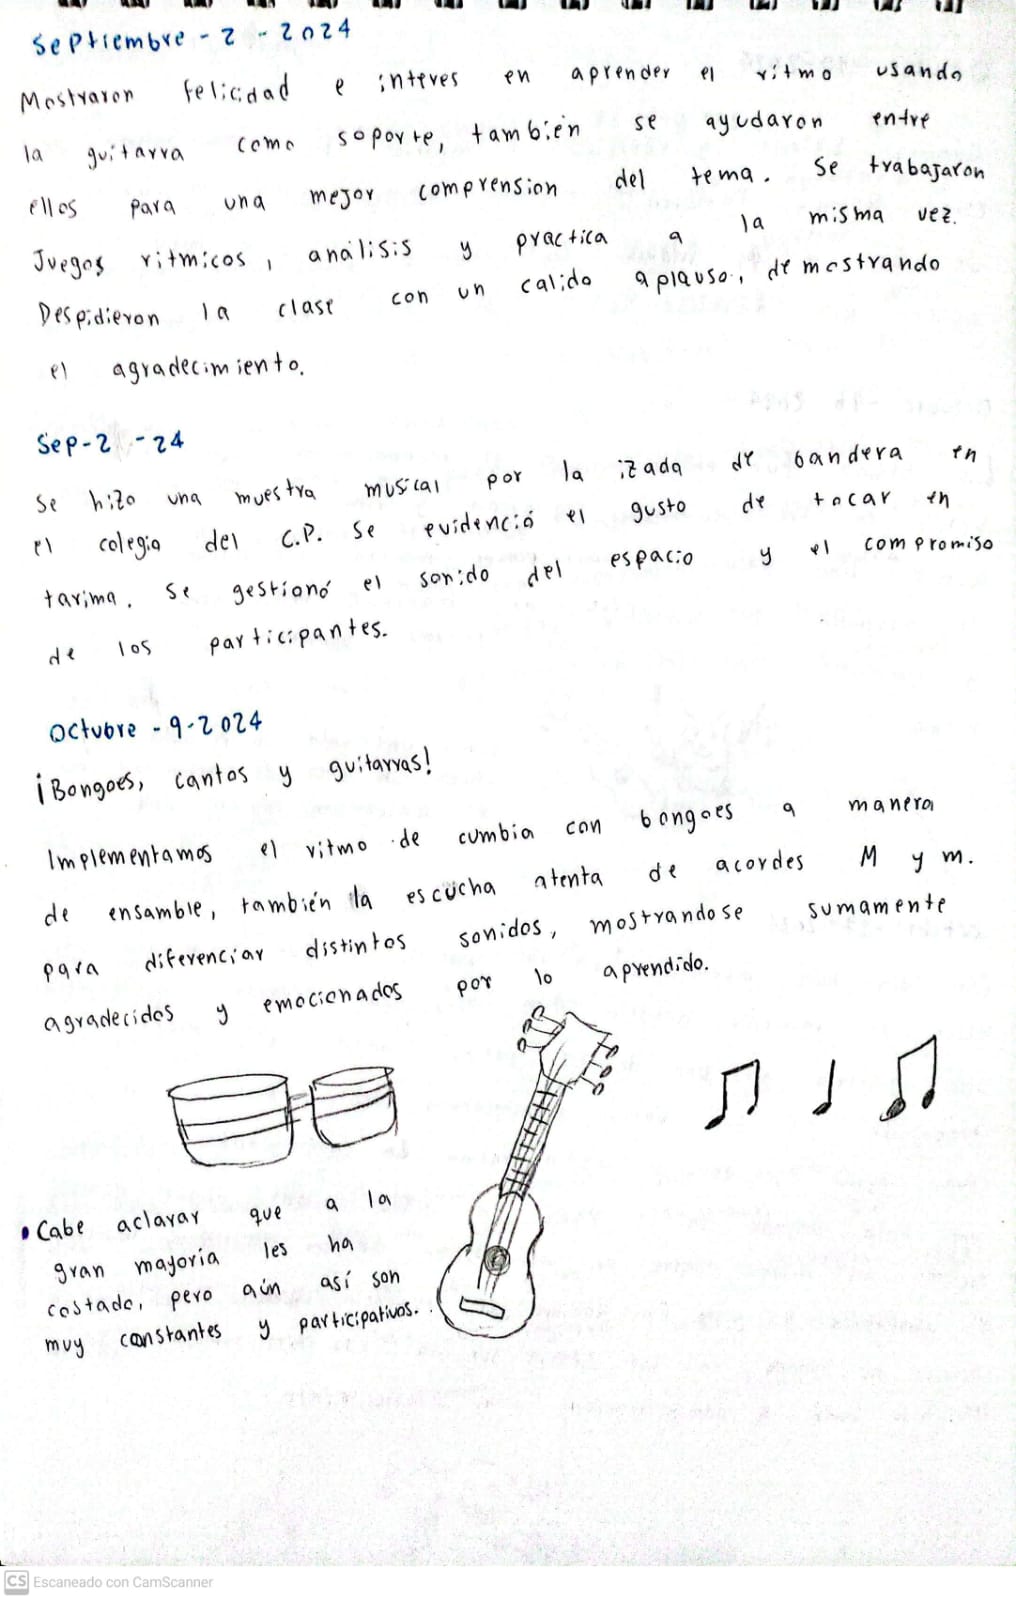 Septiembre - 2 - 2024
Mostraron felicidad e interes en aprender el ritmo usando
la guitarra como soporte, también se ayudaron entre
ellos para una mejor comprension del tema. Se trabajaron
Juegos ritmicos, análisis y practica a la misma vez.
Despidieron la clase con un calido aplauso, demostrando
el agradecimiento.
Sep-2 -24
Se hizo una muestra musical por la izada de bandera en
el colegio del C.P. Se evidenció el gusto de tocar en
tarima. Se gestionó el sonido del espacio y el compromiso
de los participantes.
Octubre - 9-2024
¡Bongoes, cantos y guitarras!
Implementamos el ritmo de cumbia con bongoes a manera
de ensamble, también la escucha atenta de acordes M y m.
para diferenciar distintos sonidos, mostrandose sumamente
agradecidos y emocionados por lo aprendido.
• Cabe aclarar que a la
gran mayoría les ha
costado, pero aún así son
muy constantes y participativos.
CS Escaneado con CamScanner